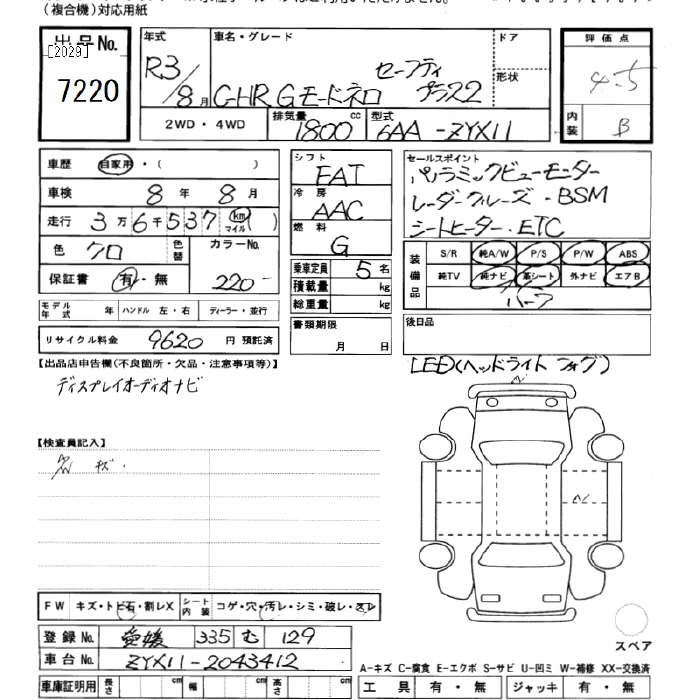 (複合機)対応用紙
出品No.
[2029]
7220
年式
R3/8月
車名・グレード
C-HR Gモードネロ
セーフティ
プラス2
ドア
形状
2WD・4WD
排気量
1800 cc
型式
6AA-ZYX11
評価点
4.5
内装
B
車歴 自家用・( )
車検 8年 8月
走行 3万6千537 km マイル ( )
色 クロ
色替
カラーNo. 220
保証書 有・無
モデル年式 年 ハンドル 左・右 ディーラー・並行
リサイクル料金 9620 円 預託済
シフト
FAT
冷房
AAC
燃料
G
乗車定員 5名
積載量 kg
総重量 kg
書類期限
月 日
セールスポイント
パノラミックビューモニター
レーダークルーズ・BSM
シートヒーター・ETC
装備品
S/R 純A/W P/S P/W ABS
純TV 純ナビ 革シート 外ナビ エアB
ハーフ
後日品
LED(ヘッドライト フォグ)
【出品店申告欄(不良箇所・欠品・注意事項等)】
ディスプレイオーディオナビ
【検査員記入】
キズ・
FW キズ・トビ石・割レX
シート内装 コゲ・穴・汚レ・シミ・破レ・スレ
登録No. 愛媛 335 む 129
車台No. ZYX11-2043412
車庫証明用 長さ cm 幅 cm 高さ cm
スペア
A-キズ C-腐食 E-エクボ S-サビ U-凹ミ W-補修 XX-交換済
工具 有・無 ジャッキ 有・無